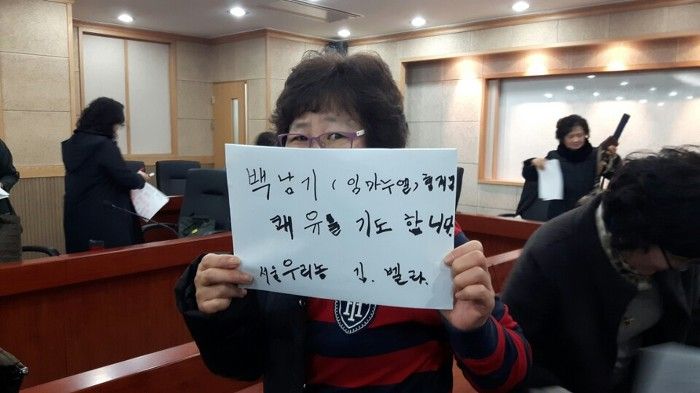 백남기 (임마누엘) 형제님
쾌유를 기도 합니다.
서울 우리농 김. 벨라.